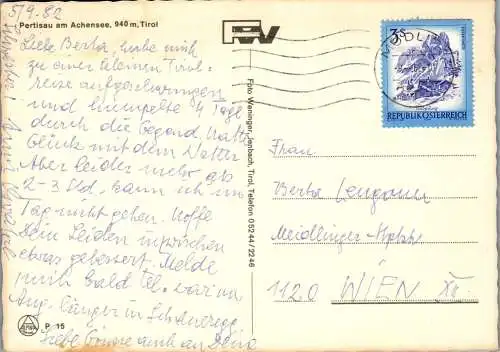 5/9.82
Pertisau am Achensee, 940 m, Tirol
Liebe Berta, habe mich
zu einer kleinen Tirol-
reise aufgeschwungen
und humpelte 4 Tage
durch die Gegend. Hatte
Glück mit dem Wetter
Aber leider mehr als
2-3 Std. kann ich im
Tag nicht gehen. Hoffe
Dein Leiden inzwischen
etwas gebessert. Melde
mich bald tel. war im
Aug. länger in
Liebe Grüsse auch an Deine
P 15
Foto Weninger, Jenbach, Tirol, Telefon 05244/2246
MÖDLING
S3
REPUBLIK ÖSTERREICH
Frau
Berta
Meidlinger
1120 WIEN XII.